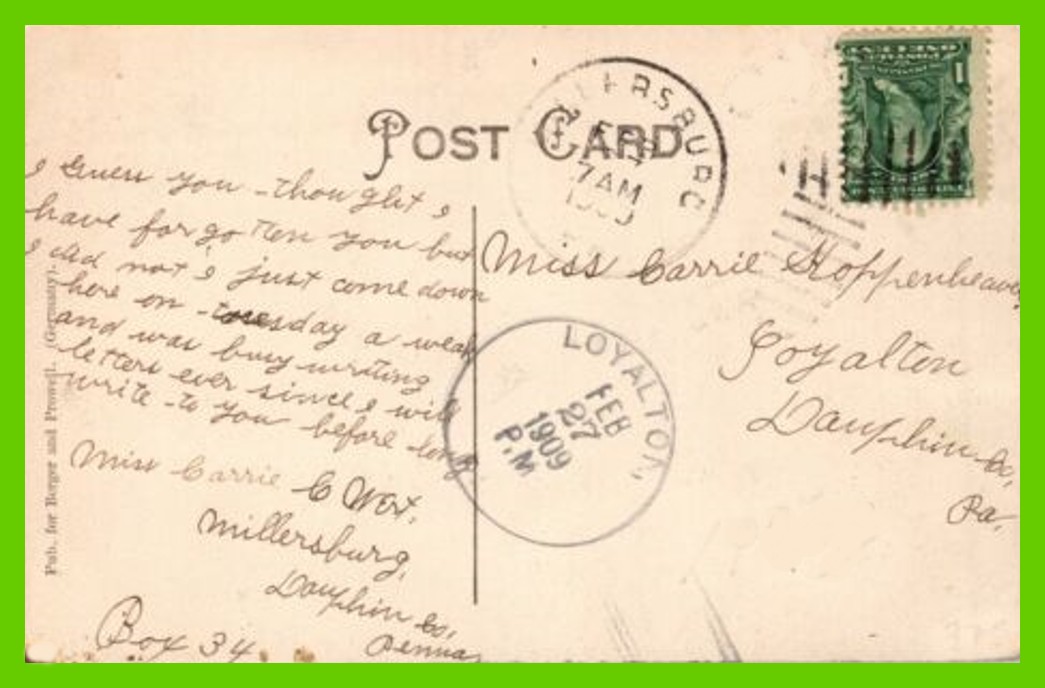 POST CARD
MILLERSBURG
FEB
27
7AM
1909
PA.
1
I Guess you thought I
have forgotten you but
I did not I just come down
here on tuesday a weak
and was busy writing
letters ever since I will
write to you before long
Miss Carrie C Wert,
Millersburg,
Dauphin Co,
Penna
Box 34
Miss Carrie Hoppenheaver
Loyalton
Dauphin Co,
Pa.
LOYALTON,
FEB
27
1909
P.M
Pub. for Berger and Prowell. (Germany).